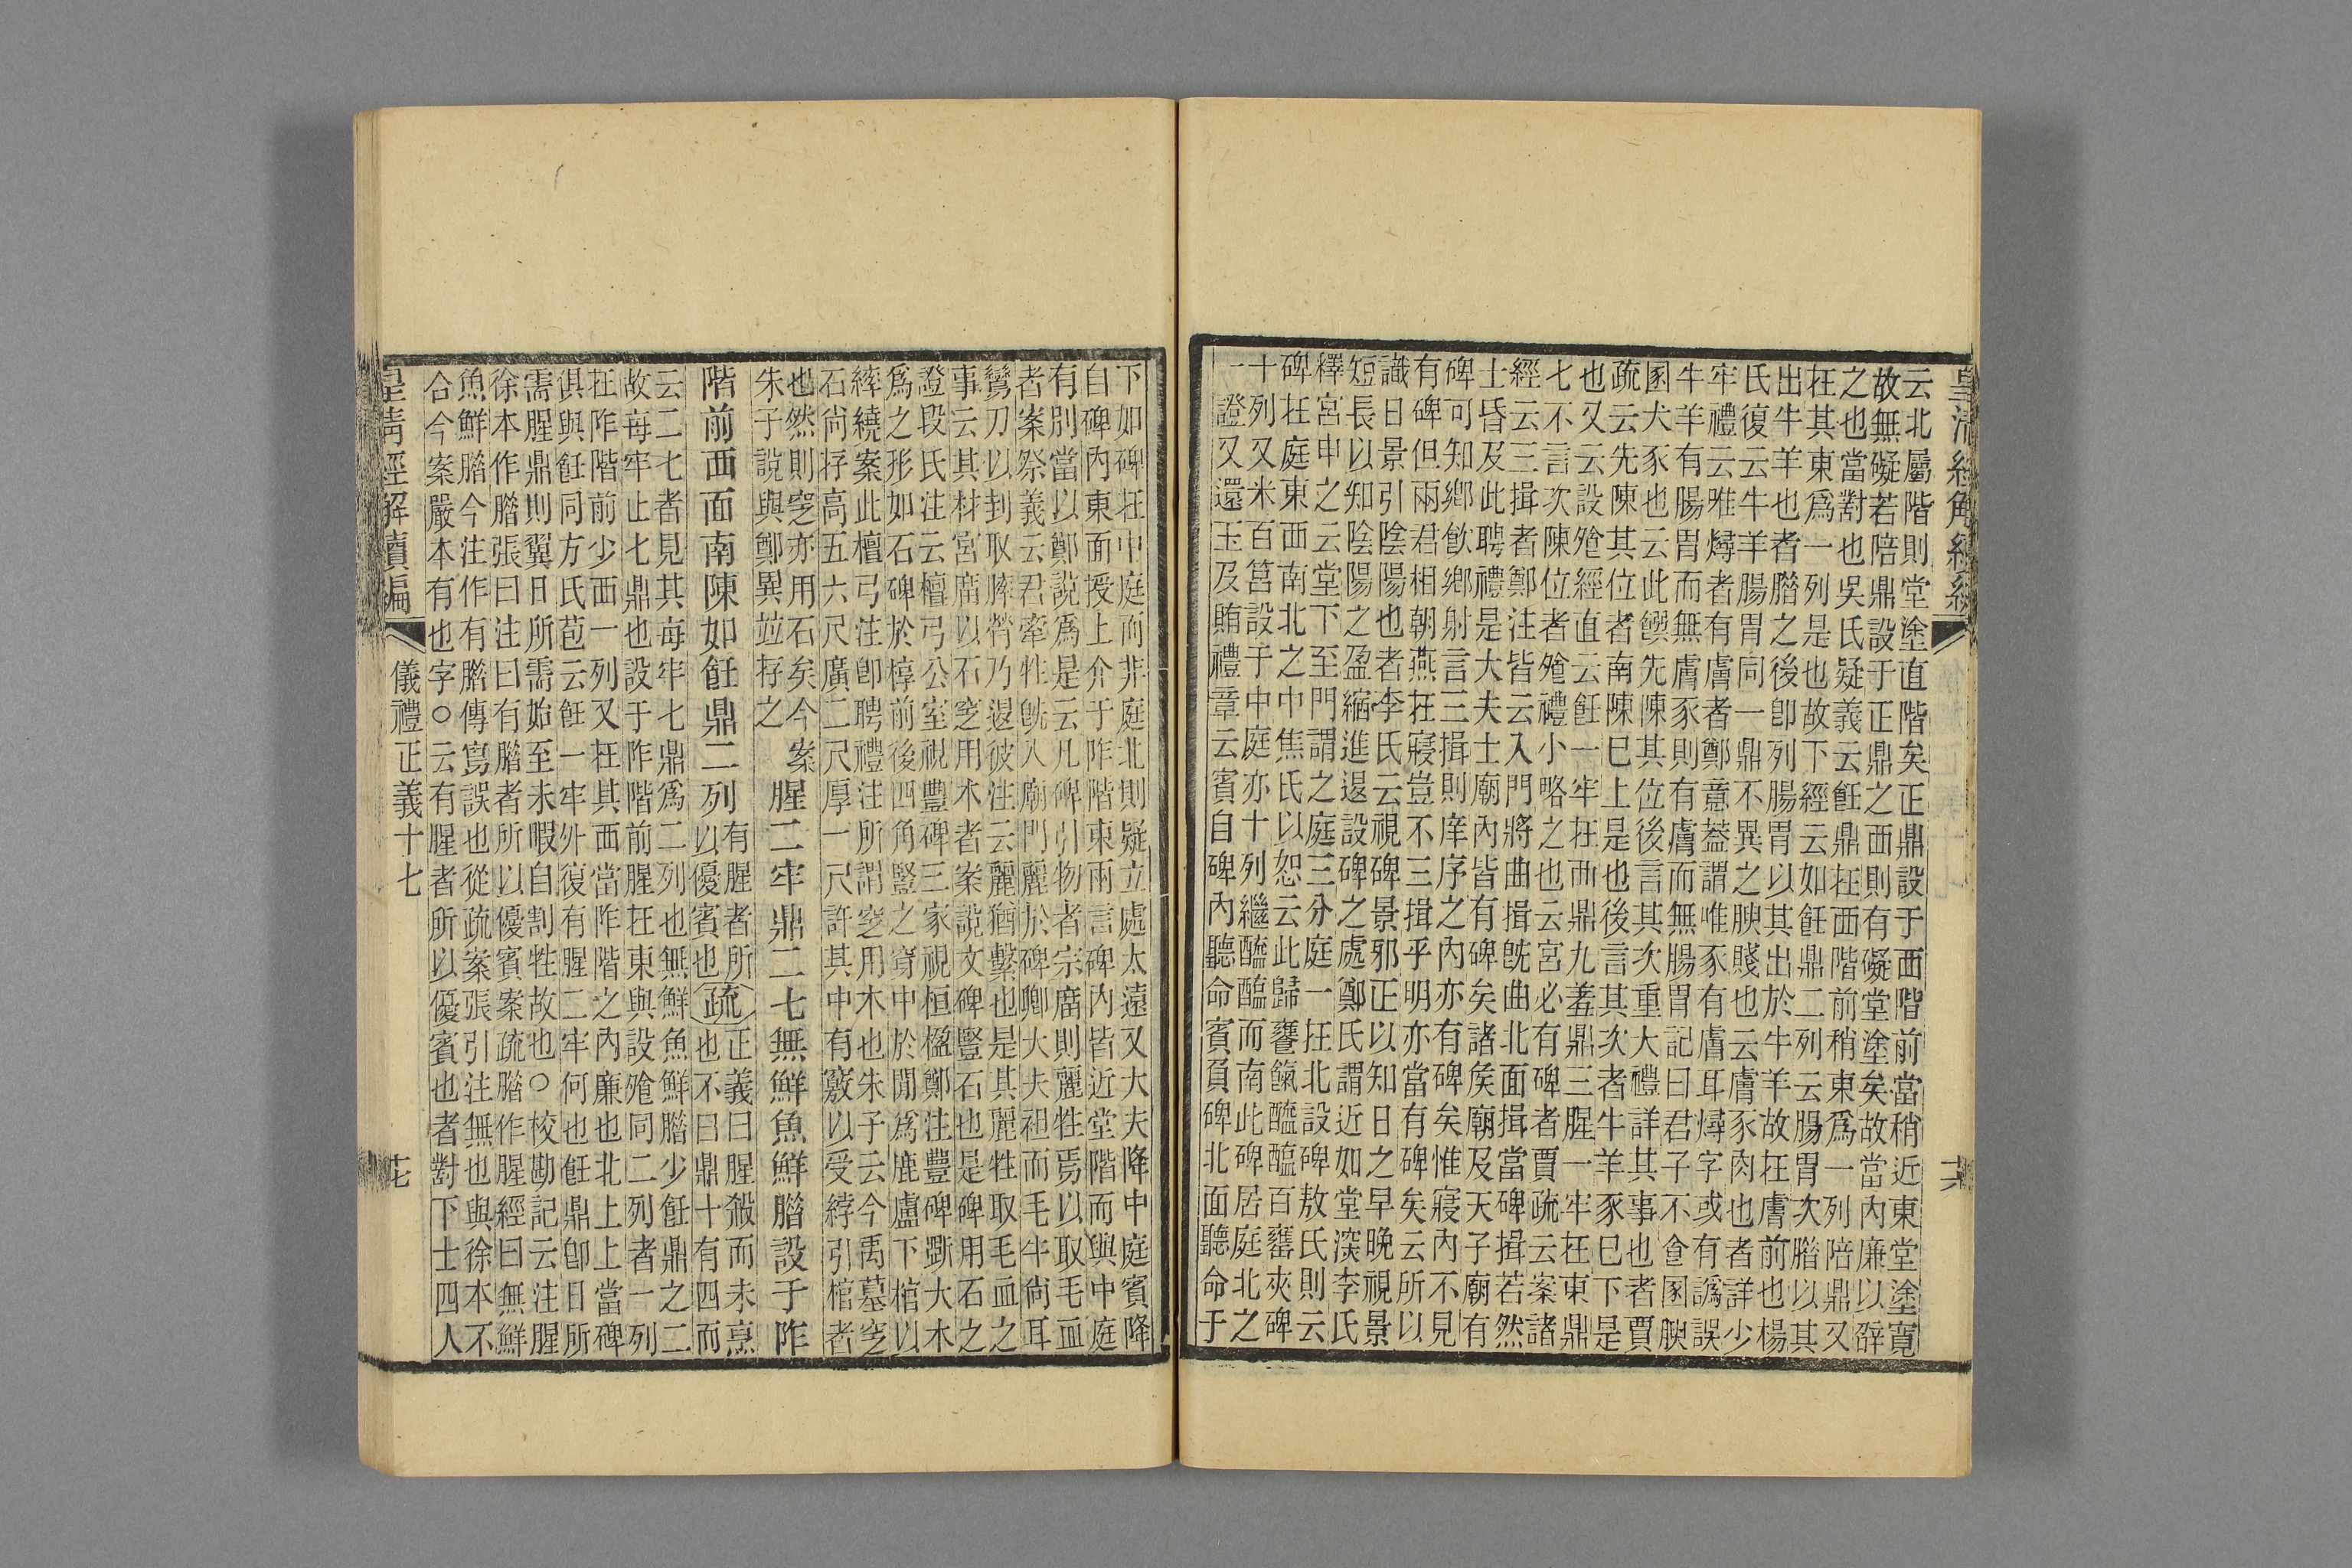 皇清經解續編
云北屬階則堂塗直階矣正鼎設于西階前當稍近東堂塗寬
故無礙若陪鼎設于正鼎之西則有礙堂塗矣故當內廉以辟
之也當對也吳氏疑義云飪鼎在西階前稍東爲一列陪鼎又
在其東爲一列是也故下經云如飪鼎二列云腸胃次腊以其
出牛羊也者腊之後卽列腸胃以其出於牛羊故在膚前也楊
氏復云牛羊腸胃同一鼎不異之腴賤也云膚豕肉也者詳少
牢禮云唯燖者有膚者鄭意葢謂唯豕有膚耳燖字或有譌誤
牛羊有腸胃而無膚豕則有膚而無腸胃記曰君子不食圂腴
圂犬豕也云此饌先陳其位後言其次重大禮詳其事也者賈
疏云先陳其位者南陳巳上是也後言其次者牛羊豕巳下是
也又云設飱經直云飪一牢在西鼎九羞鼎三腥一牢在東鼎
七不言次陳位者飱禮小略之也云宮必有碑者賈疏云案諸
經云三揖者鄭注皆云入門將曲揖旣曲北面揖當碑揖若然
士昏及此聘禮是大夫士廟內皆有碑矣諸矦廟及天子廟有
碑可知鄉飮鄉射言三揖則庠序之內亦有碑矣惟寢內不見
有碑但兩君相朝燕在寢豈不三揖乎明亦當有碑矣云所以
識日景引陰陽也者李氏云視碑景邪正以知日之早晚視景
短長以知陰陽之盈縮進退設碑之處鄭氏謂近如堂深李氏
釋宮中之云堂下至門謂之庭三分庭一在北設碑敖氏則云
碑在庭東西南北之中焦氏以恕云此歸饔餼醯醢百罋夾碑
十列又米百筥設于中庭亦十列繼醯醢而南此碑居庭北之
一證又還玉及賄禮章云賓自碑內聽命賓負碑北面聽命于
下如碑在中庭而非庭北則疑立處太遠又大夫降中庭賓降
自碑內東面授上介于阼階東兩言碑內皆近堂階而與中庭
有別當以鄭說爲是云凡碑引物者宗廟則麗牲焉以取毛血
者案祭義云君牽牲旣入廟門麗於碑卿大夫袒而毛牛尙耳
鸞刀以刲取膟膋乃退彼注云麗猶繫也是其麗牲取毛血之
事云其材宮廟以石窆用木者案說文碑豎石也是碑用石之
證段氏注云檀弓公室視豐碑三家視桓楹鄭注豐碑斲大木
爲之形如石碑於椁前後四角豎之穿中於閒爲鹿盧下棺以
繂繞案此檀弓注卽聘禮注所謂窆用木也朱子云今禹墓窆
石尙存高五六尺廣二尺厚一尺許其中有竅以受綍引棺者
也然則窆亦用石矣今案
朱子說與鄭異竝存之
腥二牢鼎二七無鮮魚鮮腊設于阼
階前西面南陳如飪鼎二列有腥者所以優賓也疏正義曰腥殺而未烹也不曰鼎十有四而
云二七者見其每牢七鼎爲二列也無鮮魚鮮腊少飪鼎之二
故每牢止七鼎也設于阼階前腥在東與設飱同二列者一列
在阼階前少西一列又在其西當阼階之內廉也北上上當碑
俱與飪同方氏苞云飪一牢外復有腥二牢何也飪鼎卽日所
需腥鼎則翼日所需始至未暇自割牲故也○校勘記云注腥
徐本作腊張曰注曰有腊者所以優賓案疏腊作腥經曰無鮮
魚鮮腊今注作有腊傳寫誤也從疏案張引注無也與徐本不
合今案嚴本有也字○云有腥者所以優賓也者對下士四人
皇清經解續編　儀禮正義十七